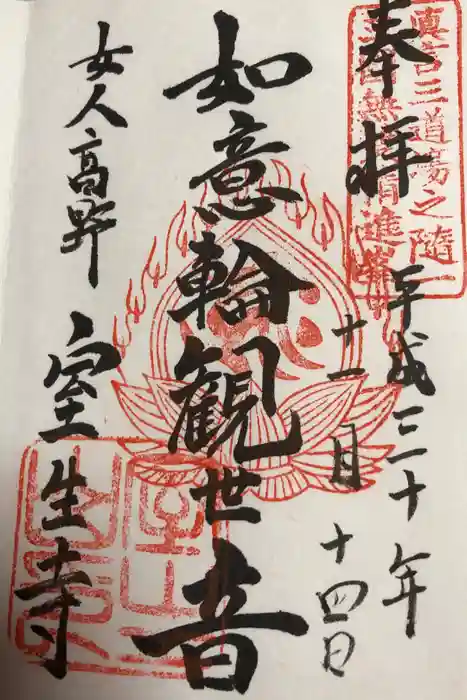 奉拝
真言三道場之随一
平成三十年
十一月
十四日
如意輪観世音
女人高野
室生寺